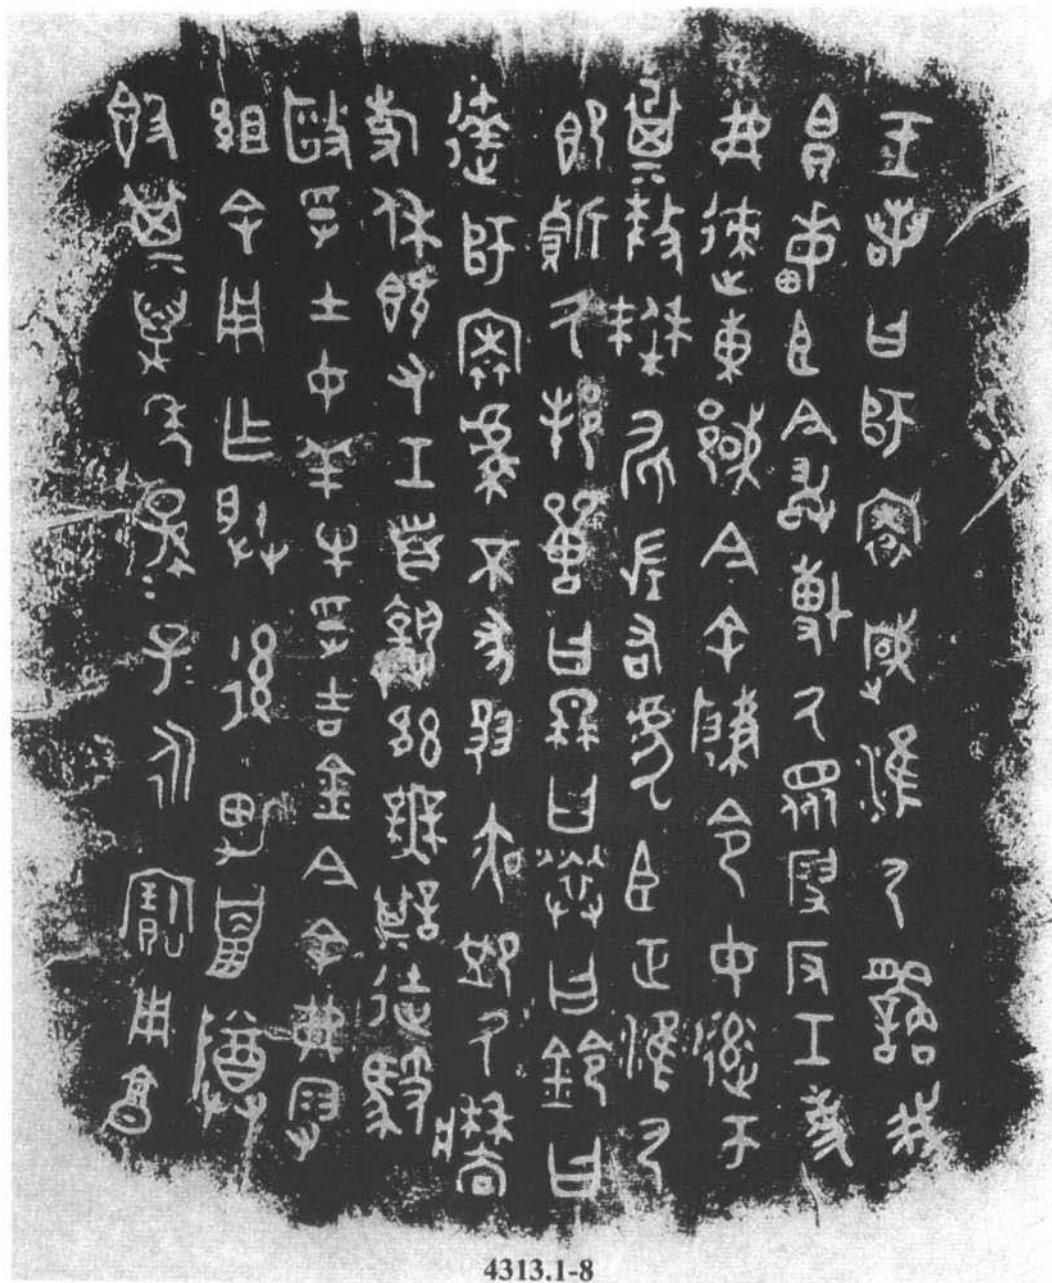 王若曰師㝨淮尸繇我
畮臣今敢博厥眾叚反工吏
弗速東國今余肇令女齊帀
㠱釐僰左右虎臣正淮尸
即質厥邦獸曰冉曰䍙曰鈴曰
達師㝨虔不豕夙夜卹厥牆
事休既又工折首執訊無諆徒馭
毆孚士女羊牛孚吉金今余弗叚
組余用乍朕後男巤尊
簋其萬年孫孫子子永寶用享
4313.1-8